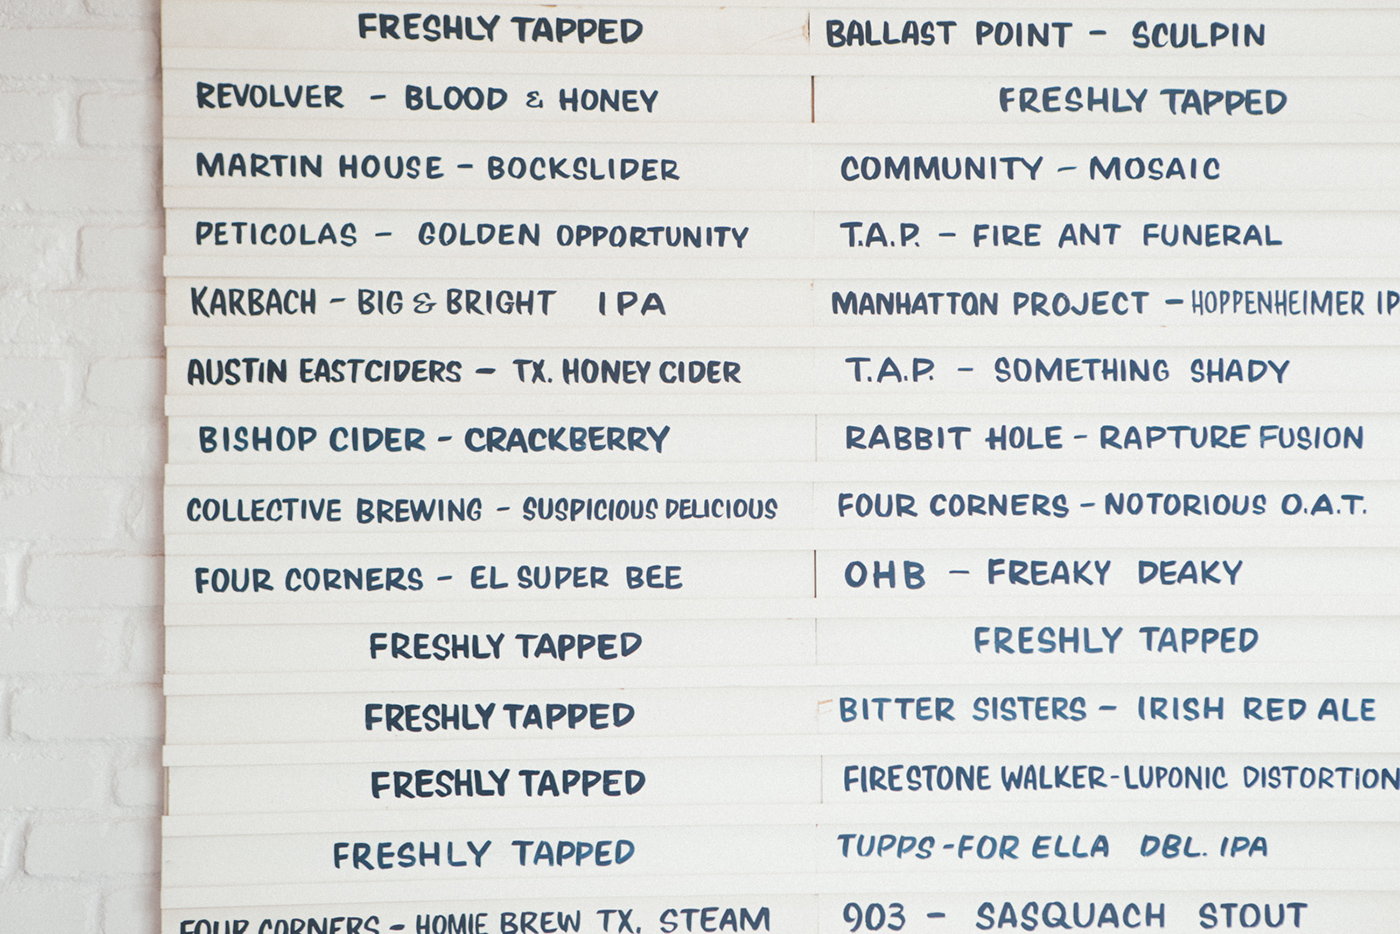 FRESHLY TAPPED
REVOLVER - BLOOD & HONEY
MARTIN HOUSE - BOCKSLIDER
PETICOLAS - GOLDEN OPPORTUNITY
KARBACH - BIG & BRIGHT IPA
AUSTIN EASTCIDERS - TX. HONEY CIDER
BISHOP CIDER - CRACKBERRY
COLLECTIVE BREWING - SUSPICIOUS DELICIOUS
FOUR CORNERS - EL SUPER BEE
FRESHLY TAPPED
FRESHLY TAPPED
FRESHLY TAPPED
FRESHLY TAPPED
FOUR CORNERS - HOMIE BREW TX. STEAM
BALLAST POINT - SCULPIN
FRESHLY TAPPED
COMMUNITY - MOSAIC
T.A.P. - FIRE ANT FUNERAL
MANHATTAN PROJECT - HOPPENHEIMER IP
T.A.P. - SOMETHING SHADY
RABBIT HOLE - RAPTURE FUSION
FOUR CORNERS - NOTORIOUS O.A.T.
OHB - FREAKY DEAKY
FRESHLY TAPPED
BITTER SISTERS - IRISH RED ALE
FIRESTONE WALKER - LUPONIC DISTORTION
TUPPS - FOR ELLA DBL. IPA
903 - SASQUACH STOUT